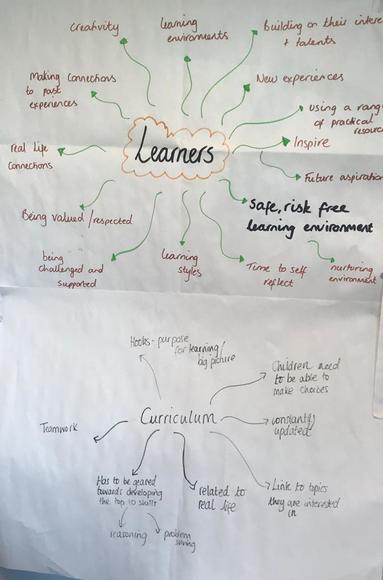 Creativity
learning
environments
building on their intere
+ talents
Making connections
to past
experiences
New experiences
using a rang
of practical
resourc
Learners
Inspire
real life
connections
Future aspiration
Safe, risk free
learning environment
Being valued/respected
being
challenged and
supported
learning
styles
Time to self
reflect
nurturing
environment
Hooks - purpose
for learning/
big picture
Children need
to be able to
make choices
Curriculum
constantly
updated
Teamwork
Has to be geared
towards developing
the top 10 skills
related to
real life
Link to topics
they are interested
in
reasoning
problem
solving